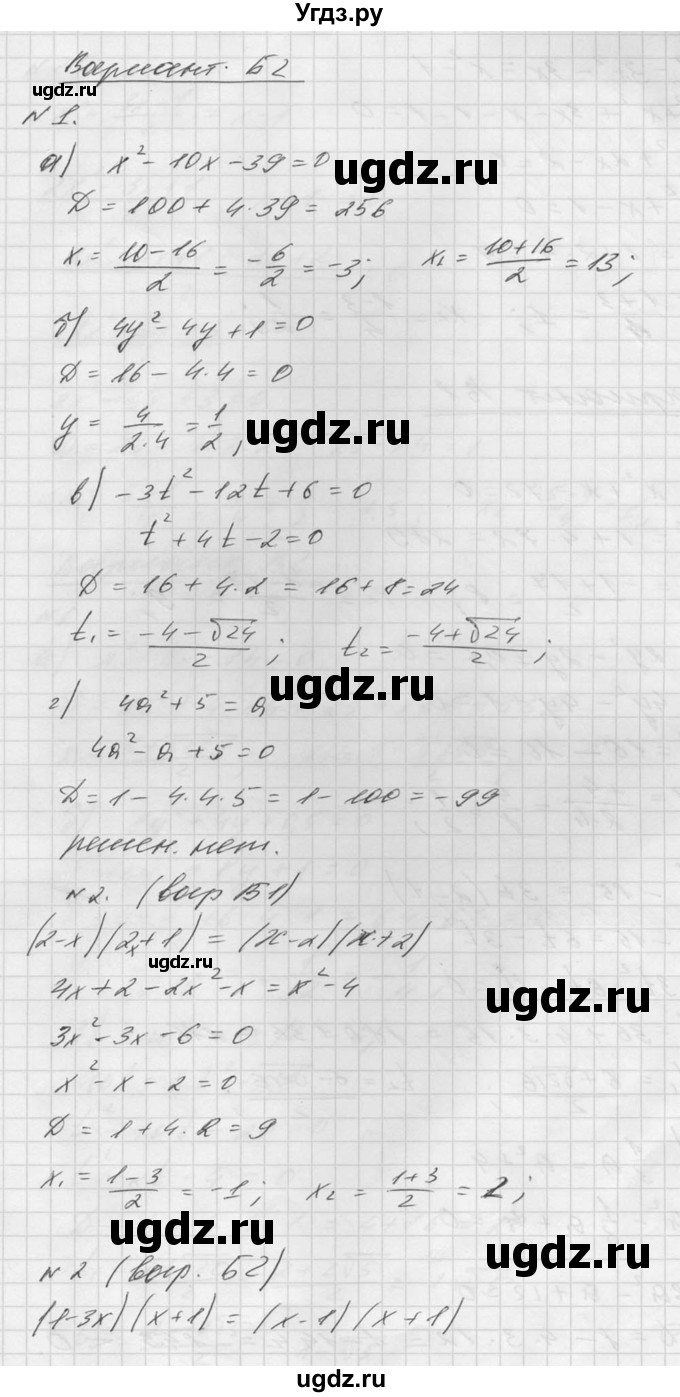 Угдз.ру
Вариант. Б2
угдз.ру
№ 1.
а) x² - 10x - 39 = 0
ugdz.ru
D = 100 + 4·39 = 256
x₁ = (10-16)/2 = -6/2 = -3; x₁ = (10+16)/2 = 13;
б) 4y² - 4y + 1 = 0
D = 16 - 4·4 = 0
y = 4/(2·4) = 1/2;
ugdz.ru
в) -3t² - 12t + 6 = 0
t² + 4t - 2 = 0
D = 16 + 4·2 = 16 + 8 = 24
t₁ = (-4-√24)/2; t₂ = (-4+√24)/2;
ugdz.ru
г) 4a² + 5 = a
4a² - a + 5 = 0
D = 1 - 4·4·5 = 1 - 100 = -99
решен. нет.
№ 2. (вар Б1)
(2-x)(2x+1) = (x-2)(x+2)
ugdz.ru
4x + 2 - 2x² - x = x² - 4
ugdz.ru
3x² - 3x - 6 = 0
x² - x - 2 = 0
D = 1 + 4·2 = 9
x₁ = (1-3)/2 = -1; x₂ = (1+3)/2 = 2;
ugdz.ru
№ 2 (вар. Б2)
ugdz.ru
(1-3x)(x+1) = (x-1)(x+1)
ugdz.ru